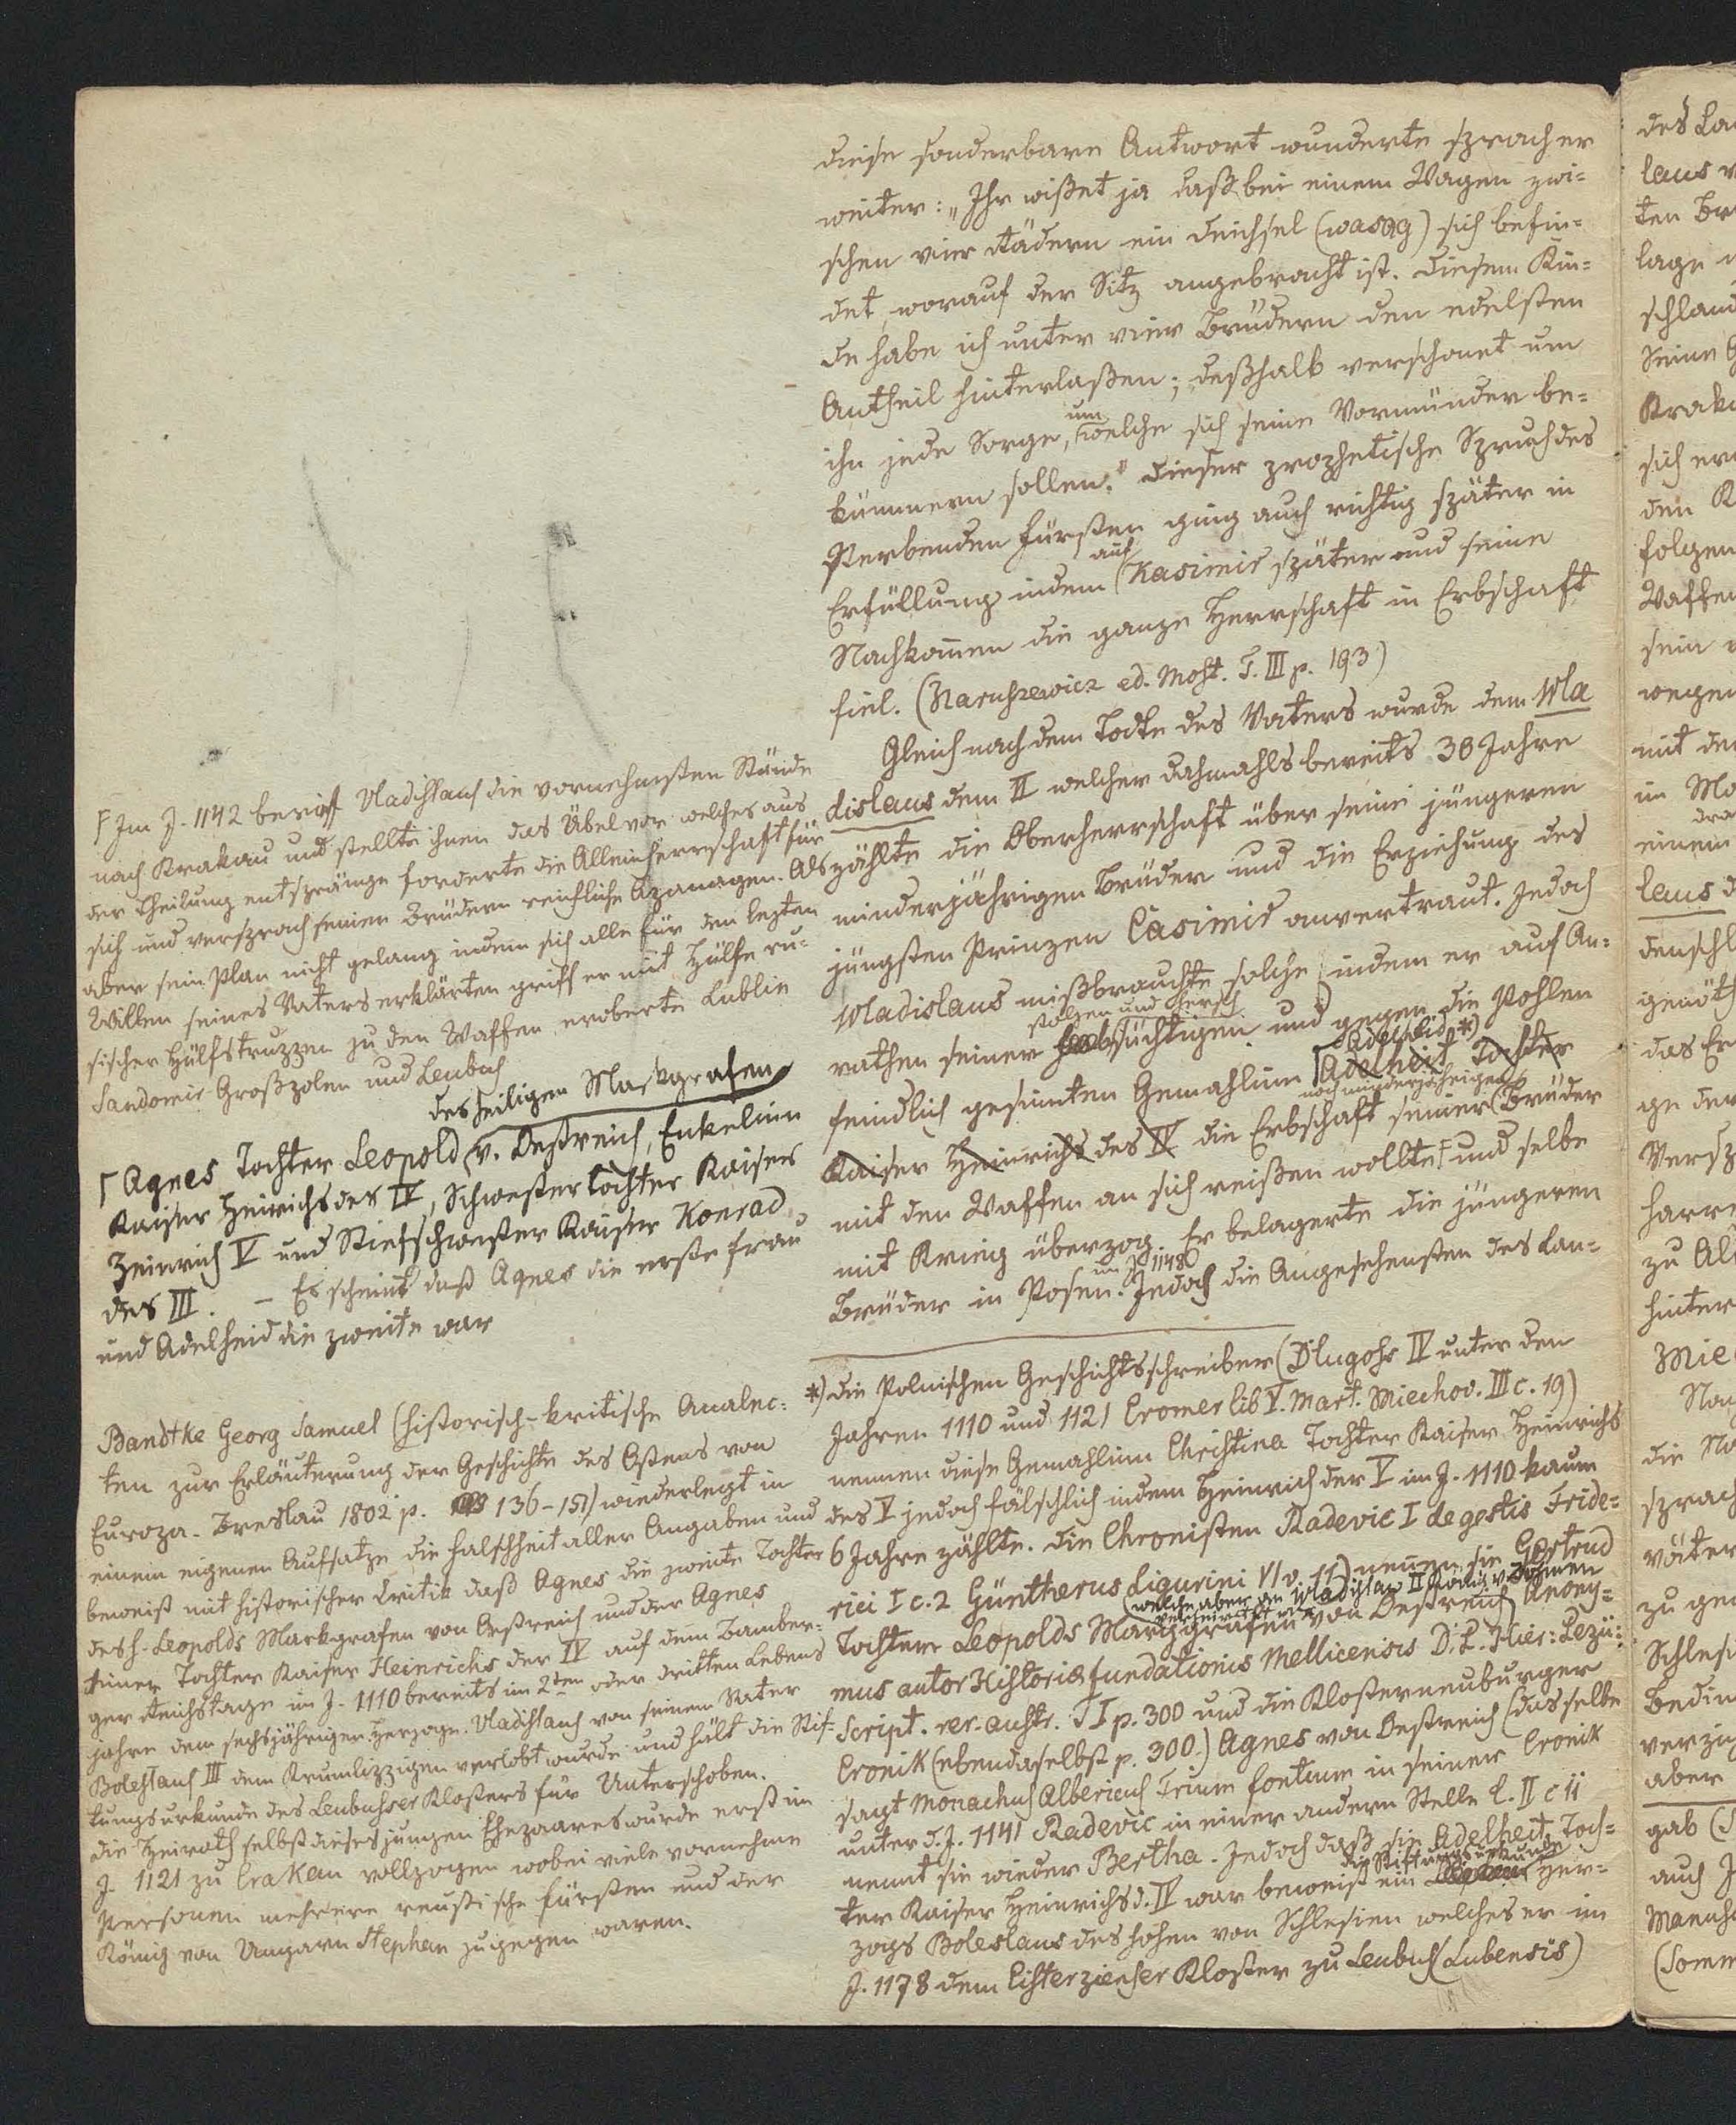 diese sonderbare Antwort wunderte sprach er
weiter: „Ihr wißet ja daß bei einem Wagen zwi=
schen vier Rädern ein Deichsel (wasąg) sich befin=
det, worauf der Sitz angebracht ist. Diesem Kin=
de habe ich unter vier Brüdern den edelsten
Antheil hinterlaßen; deßhalb verschonet um
ihn jede Sorge, um welche sich seine Vormünder be=
kümmern sollen." Dieser prophetische Spruch des
Sterbenden Fürsten ging auch richtig später in
Erfüllung indem auf Kasimir später und seine
Nachkomen die ganze Herrschaft in Erbschaft
fiel. (Naruszewicz ed. Most. T. III p. 193)
Gleich nach dem Tode des Vaters wurde dem Wla
dislaus dem II welcher dahmahls bereits 30 Jahre
zählte die Oberherrschaft über seine jüngeren
minderjährigen Brüder und die Erziehung des
jüngsten Prinzen Casimir anvertraut. Jedoch
Wladislaus mißbrauchte solche indem er auf An=
rathen seiner stolzen und hersch süchtigen und gegen die Pohlen
feindlich gesinten Gemahlinn Adelheid *) Adelheit Tochter
Kaiser Heinrichs des IV die Erbschaft seiner noch minderjährigen Brüder
mit den Waffen an sich reißen wollte F und selbe
mit Krieg überzog. Er belagerte die jüngeren
Brüder in Posen. im J 1148 Jedoch die Angesehensten des Lan=
*) die Polnischen Geschichtsschreiber (Dlugosz IV unter den
Jahren 1110 und 1121 Cromer lib V. Mart. Miechov. III c. 19)
nennen diese Gemahlinn Christina Tochter Kaiser Heinrichs
des V jedoch fälschlich indem Heinrich der V im J. 1110 kaum
6 Jahre zählte. Die Chronisten Radevic I de gestis Fride=
rici I c. 2 Güntherus Ligurini VI v. 11) nennen sie Gertrud
(welche aber an Wladislaw II König v. Böhmen
verheirathet war
Tochter Leopolds Markgrafen von Oestreich Anony=
mus autor Historiæ fundationis Mellicensis D. L. Hier: Pezü:
Script. rer. austr. T I p. 300 und die Klosterneuburger
Cronik (ebendaselbst p. 300.) Agnes von Oestreich (dasselbe
sagt Monachus Albericus Trium fontium in seiner Cronik
unter d. J. 1141 Radevic in einer andern Stelle L. II c ii
nennt sie wieder Bertha. Jedoch daß sie Adelheit Toch=
ter Kaiser Heinrichs d. IV war beweist die Stiftungsurkunde ein Her=
zogs Boleslaus des hohen von Schlesien welches er im
J. 1178 dem Cisterzienser Kloster zu Leubus (Lubensis)
F Im J. 1142 berief Uladislaus die vornehmsten Stände
nach Krakau und stellte ihnen das Übel vor welches aus
der Theilung entspränge forderte die Alleinherrschaft für
sich und versprach seinen Brüdern reichliche Apanagen. Als
aber sein Plan nicht gelang indem sich alle für den lezten
Willen seines Vaters erklärten griff er mit Hülfe ru=
sischer Hülfstruppen zu den Waffen, eroberte Lublin
Sandomir Großpolen und Leubus
des heiligen Markgrafen
Agnes Tochter Leopold v. Oestreich, Enkelinn
Kaiser Heinrichs des IV, Schwester Tochter Kaisers
Heinrich V und Stiefschwester Kaiser Konrad
des III. — Es scheint daß Agnes die erste Frau
und Adelheid die zweite war
Bandtke Georg Samuel (historisch-kritische Analec=
ten zur Erläuterung der Geschichte des Ostens von
Europa. Breslau 1802 p. 136-151) wiederlegt in
einem eigenen Aufsatze die Falschheit aller Angaben und
beweist mit historischer Critik daß Agnes die zweite Tochter
des h. Leopolds Markgrafen von Oestreich und der Agnes
einer Tochter Kaiser Heinrichs der IV auf dem Bamber=
ger Reichstage im J. 1110 bereits im 2ten oder dritten Lebens
jahre dem sechsjährigen Herzoge Uladislaus von seinem Vater
Boleslaus III dem Krumlippigen verlobt wurde und hält die Stif=
tungsurkunde des Leubuser Klosters für Unterschoben.
die Heirath selbst dieses jungen Ehepaares wurde erst im
J. 1121 zu Crakau vollzogen wobei viele vornehme
Personen mehrere reusische Fürsten und der
König von Ungarn Stephan zugegen waren.
des La
laus
ten Br
lage
schland
Seine
Krak
sich er
den K
folgen
Waffen
sein
wegen
mit de
im Ma
einem
laus d
denschl
genöth
das Er
ge der
Versp
harre
zu Al
hinter
Mie
Na
die No
sprach
väter
zu ge
Schlesi
bedin
verzi
aber
gab (
auch J
Mannh
(Somm